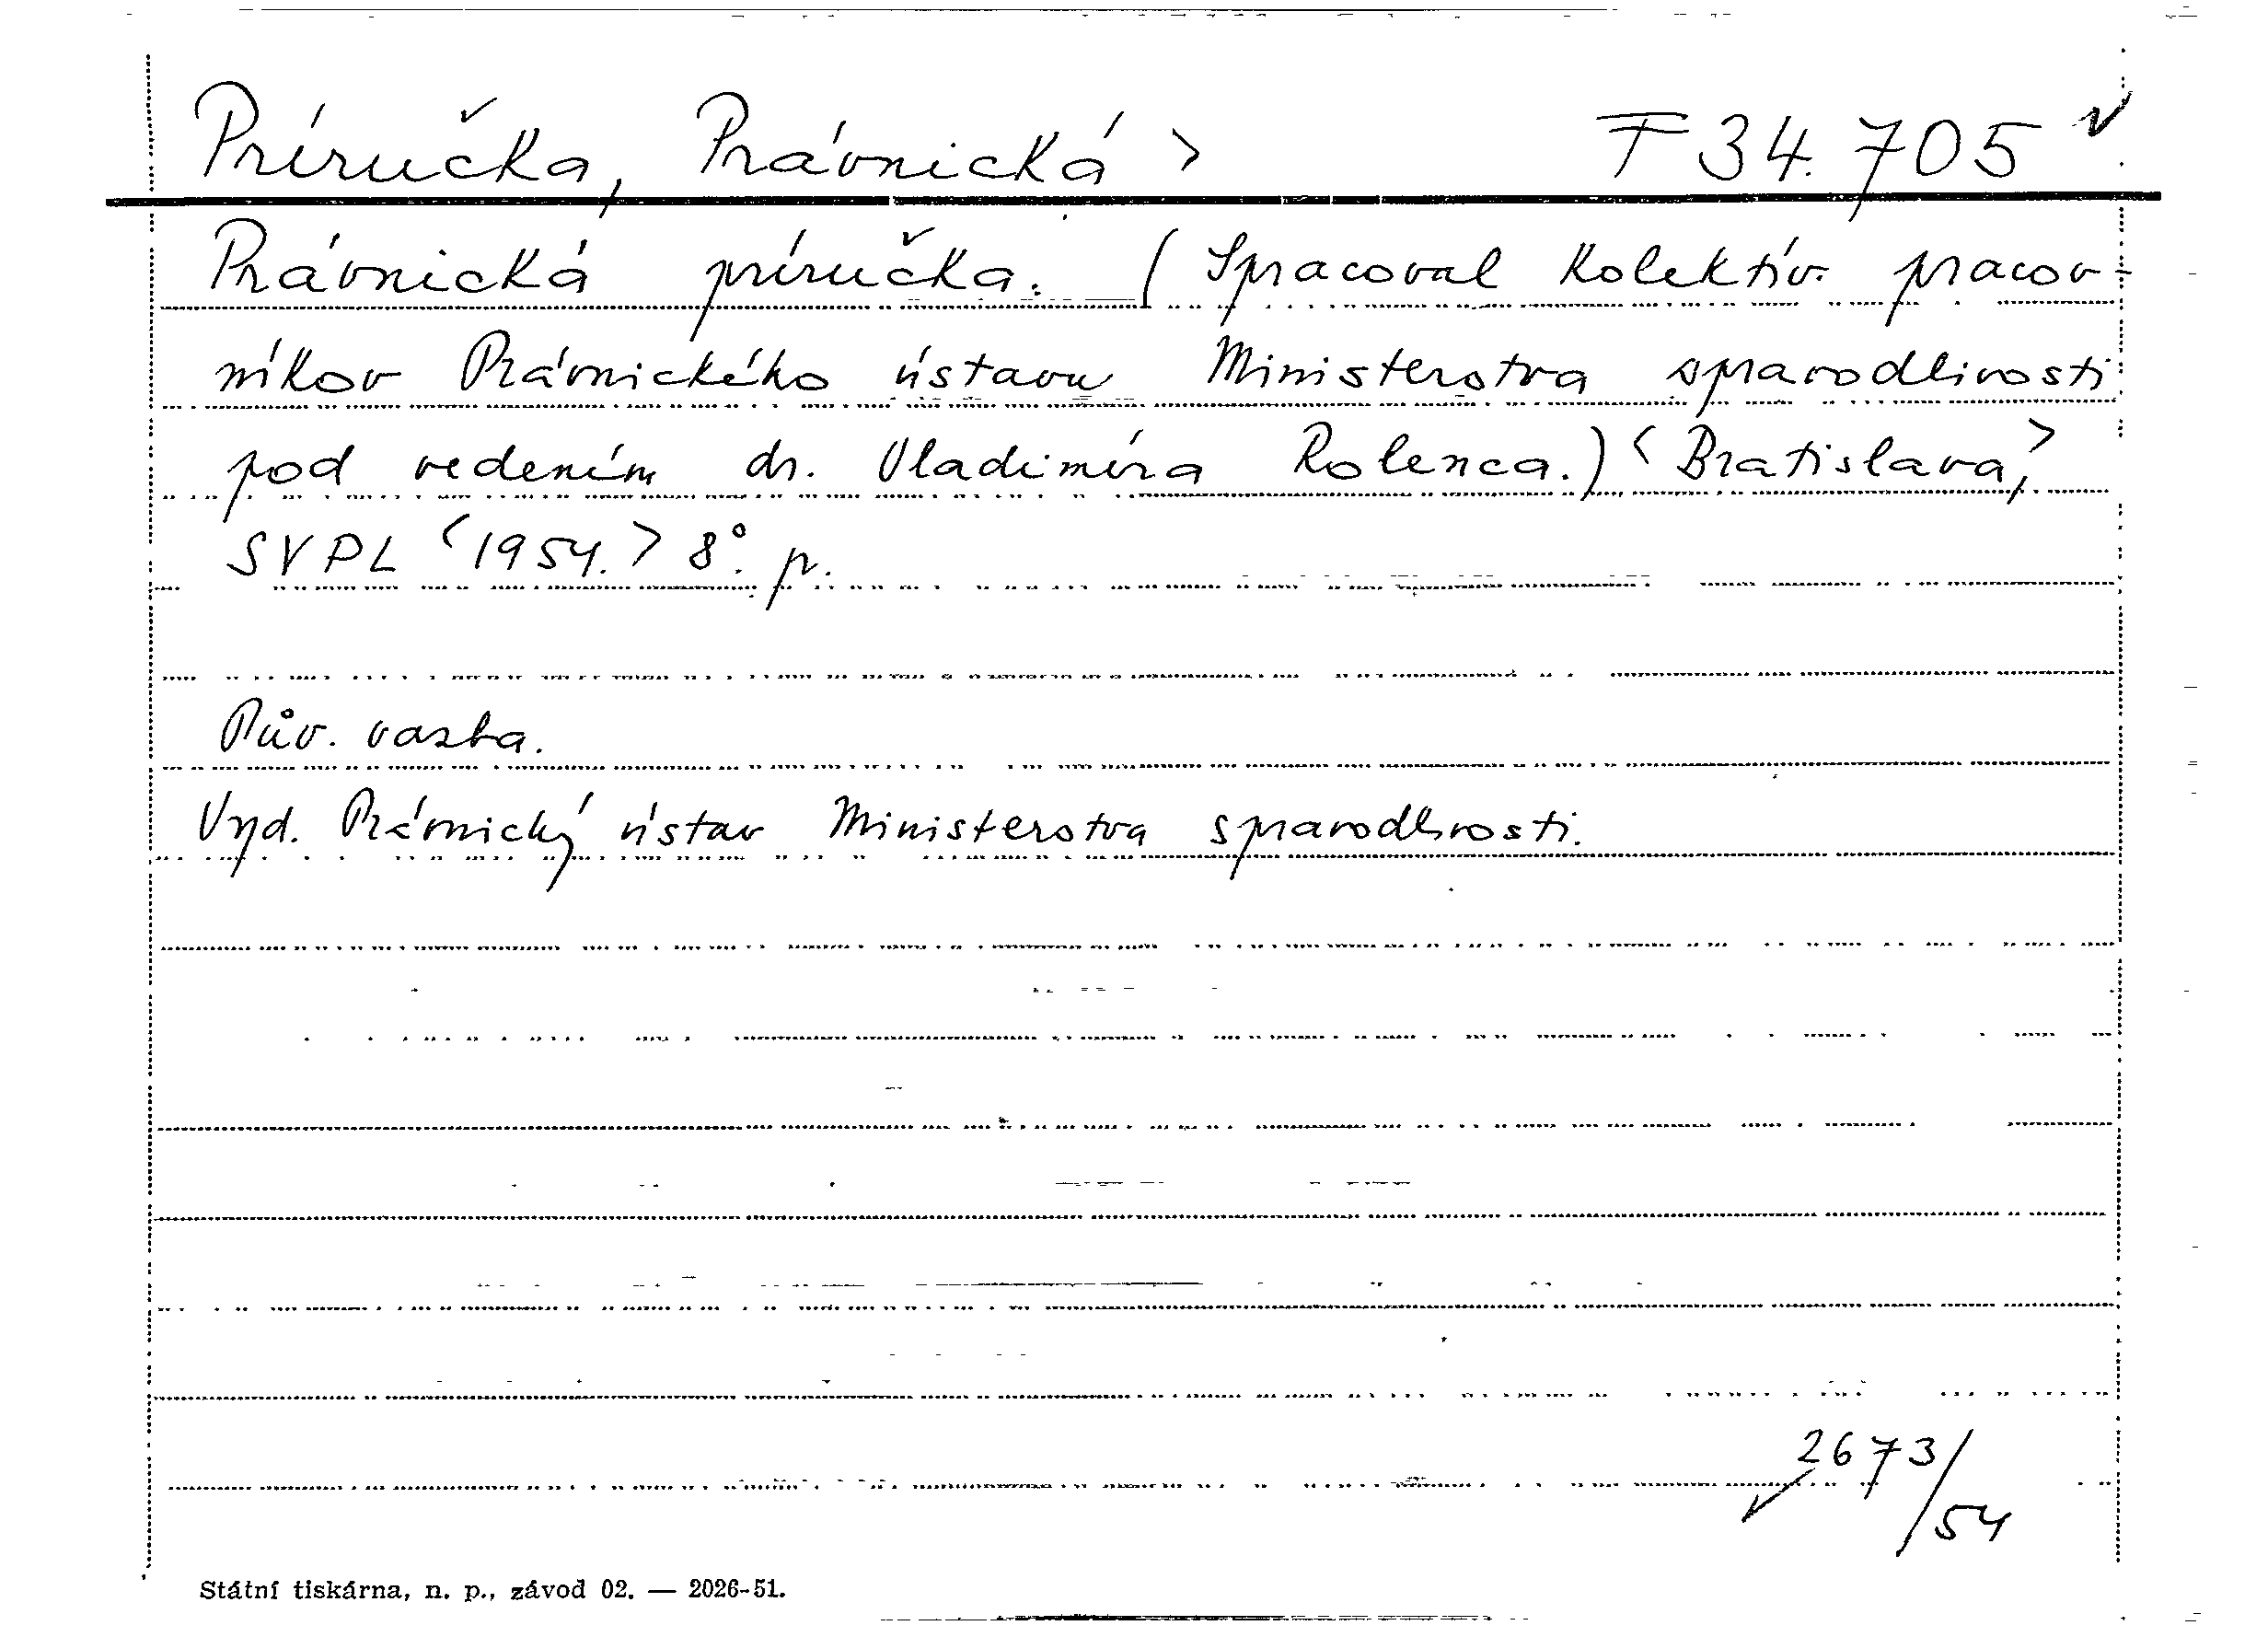 Príručka, Právnická > F 34.705
Právnická príručka. (Spracoval kolektív pracov-
níkov Právnického ústavu Ministerstva spravodlivosti
pod vedením dr. Vladimíra Rolenca.) <Bratislava,>
SVPL <1954.> 8°. p.
Pův. vazba.
Vyd. Právnický ústav Ministerstva spravodlivosti.
2673/
54
Státní tiskárna, n. p., závod 02. — 2026-51.